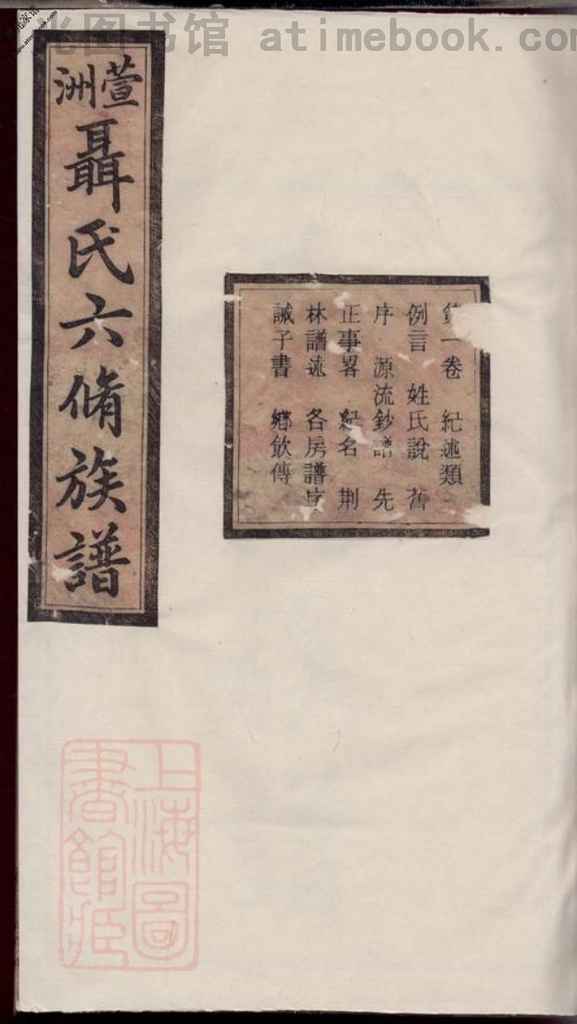 图书馆 atimebook.com
萱洲
聶氏六脩族譜
第一卷 紀述類
例言 姓氏說 舊
序 源流鈔譜 先
正事畧 紀名 荆
林譜遠 各房譜序
誡子書 鄉飲傳
上海圖
書館藏